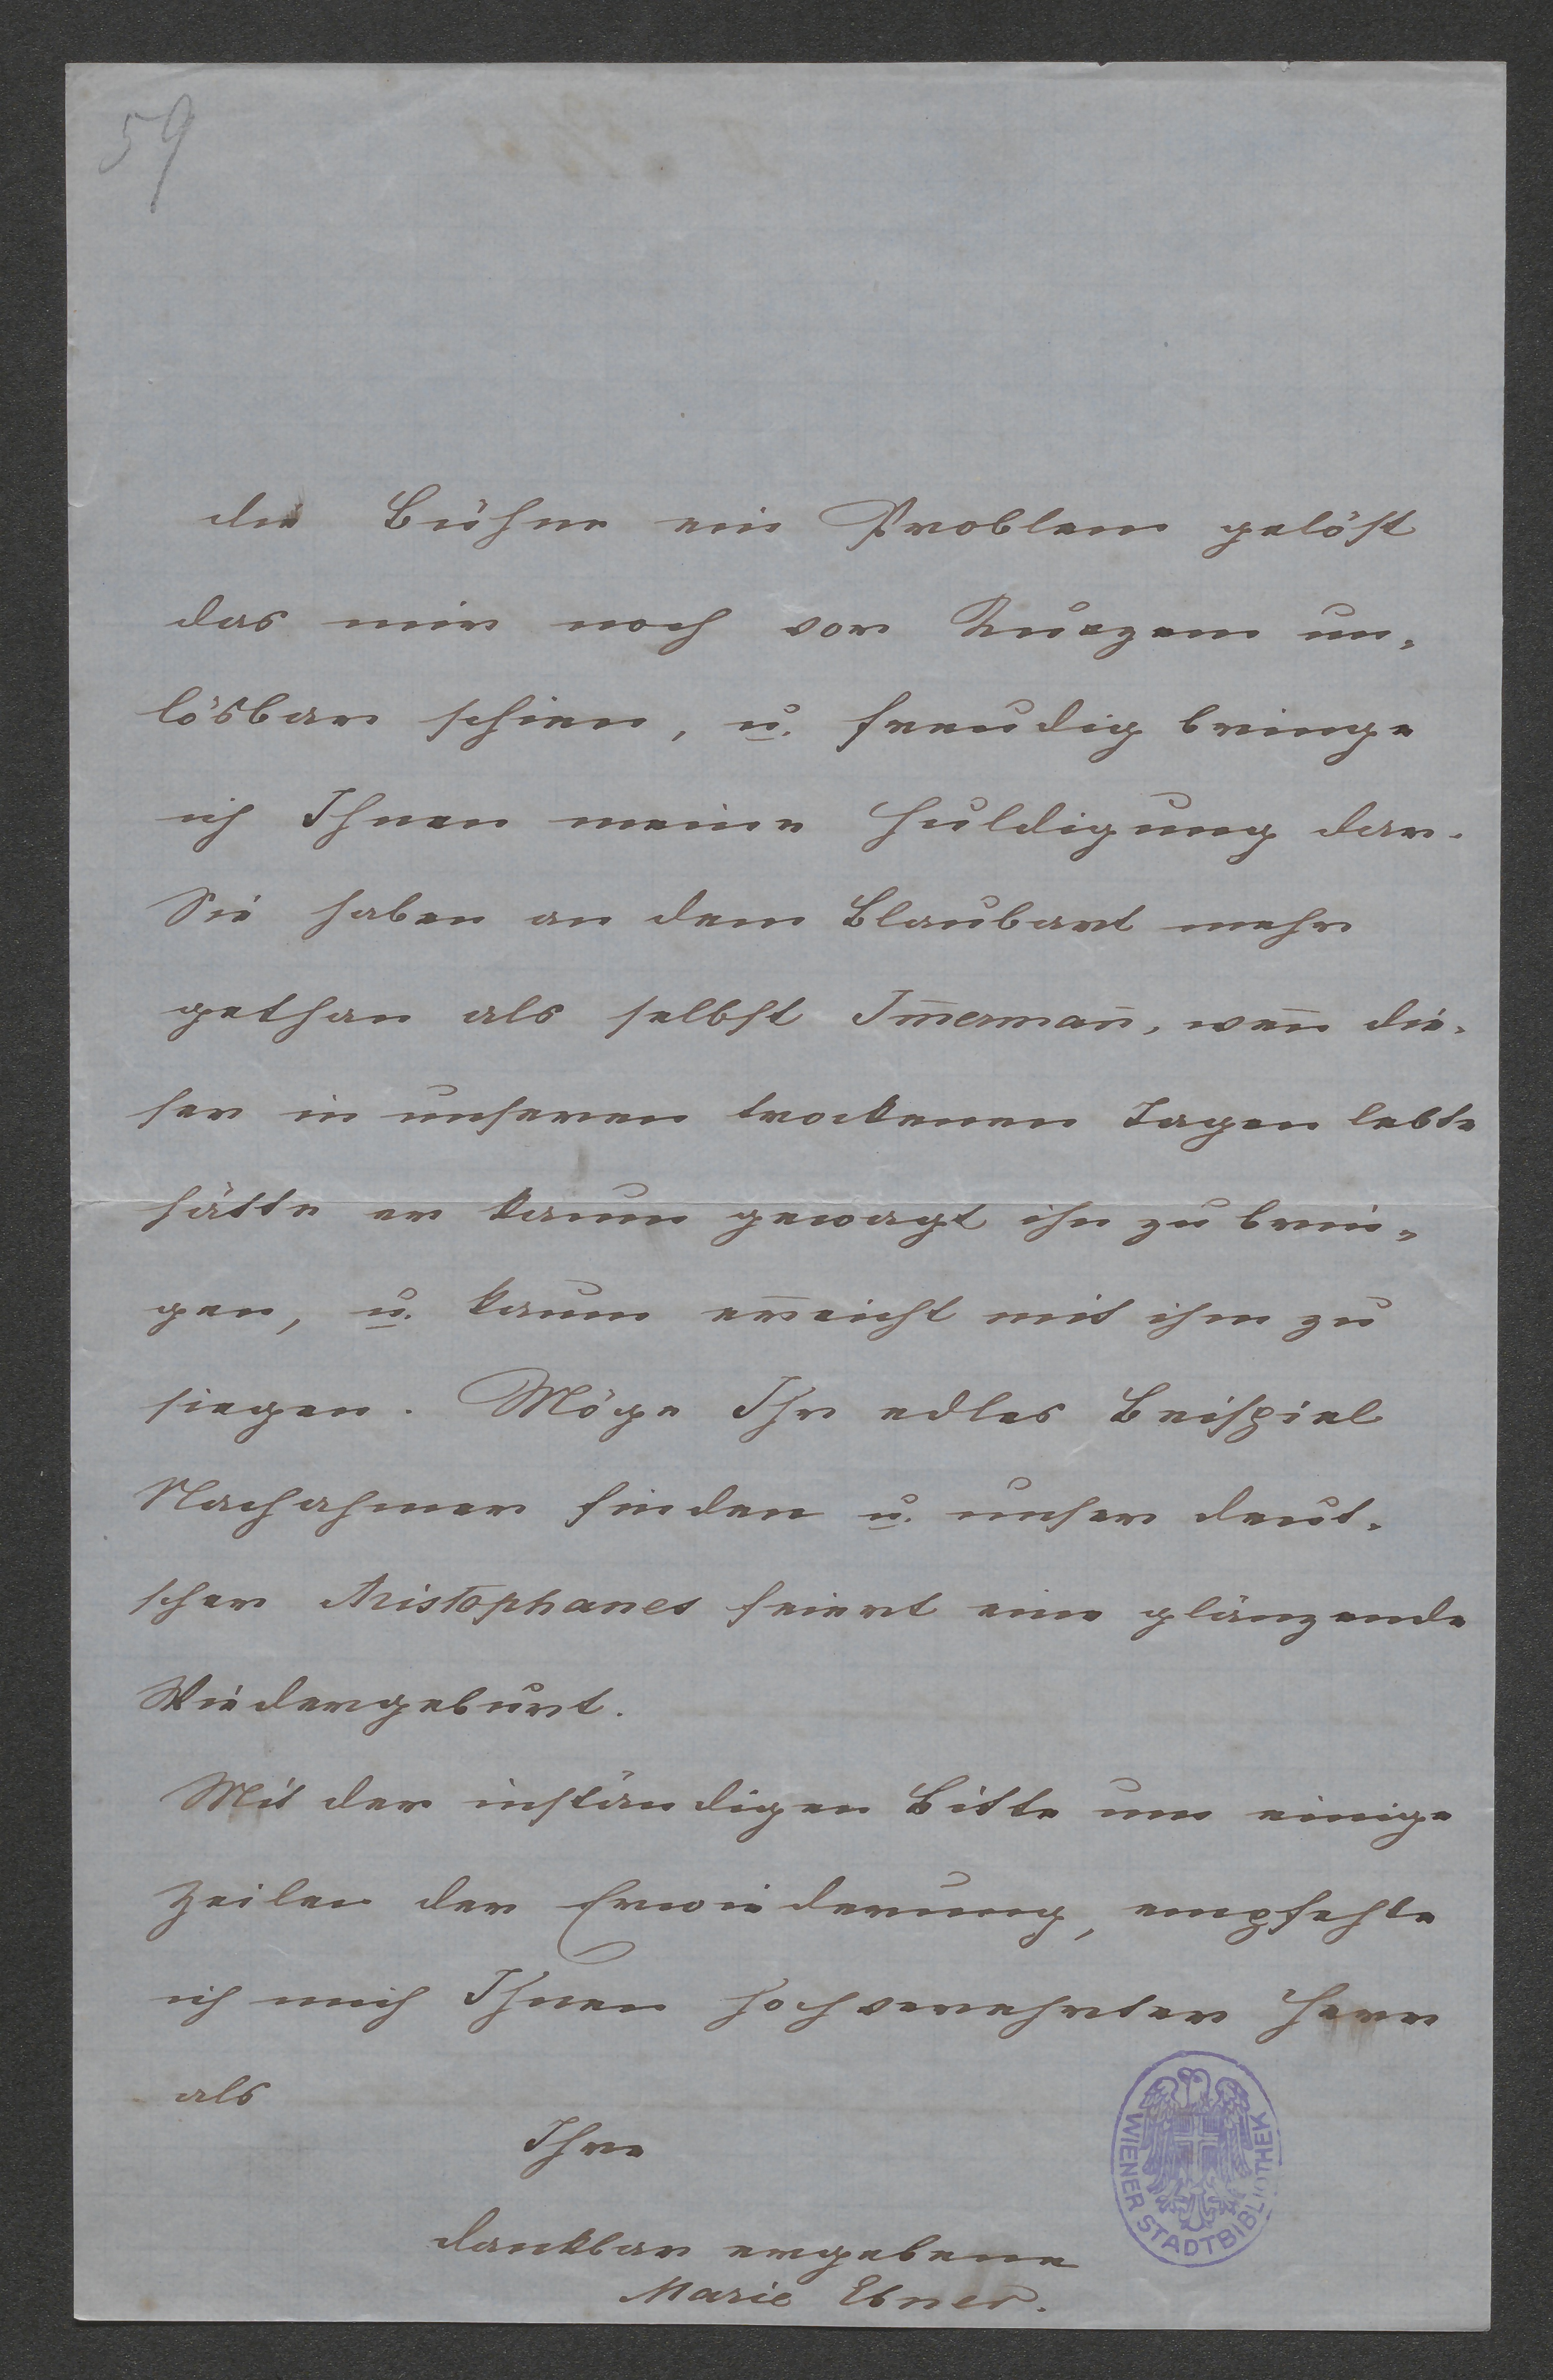 59
die Bühne ein Problem gelöst
das mir noch vor Kurzem un-
lösbar schien, u. freudig bringe
ich Ihnen meine Huldigung dar.
Sie haben an dem Blaubart mehr
gethan als selbst Im̅erman̅, wen̅ die-
ser in unseren trockenen Tagen lebte
hätte er kaum gewagt ihn zu brin-
gen, u. kaum erreicht mit ihm zu
siegen. Möge Ihr edles Beispiel
Nachahmer finden u. unser deut-
scher Aristophanes feiert eine glänzende
Wiedergeburt.
Mit der inständigen Bitte um einige
Zeilen der Erwiederung, empfehle
ich mich Ihnen hochverehrter Herr
als
Ihre
dankbar ergebene
Marie Ebner.
WIENER STADTBIBLIOTHEK